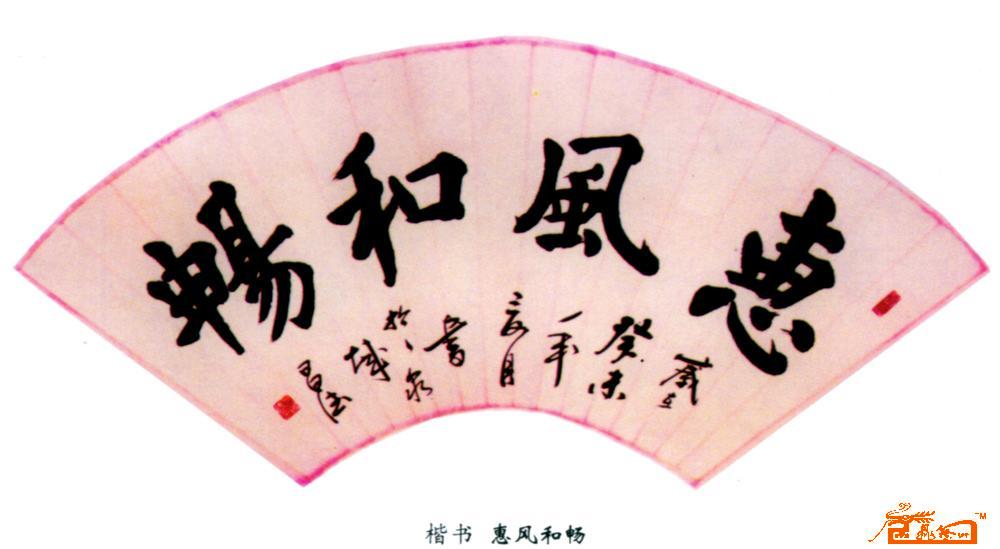 惠風和暢
歲在
癸未
年
月
書
於泉
城
楷书 惠风和畅